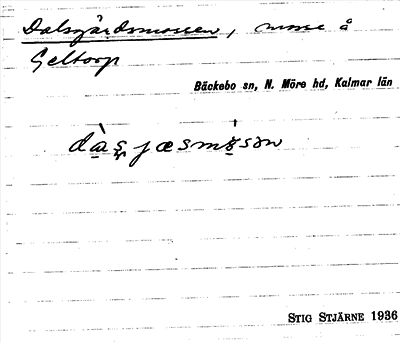 Dalsgärdsmossen, mosse å
Geltorp
Bäckebo sn, N. Möre hd, Kalmar län
STIG STJÄRNE 1936